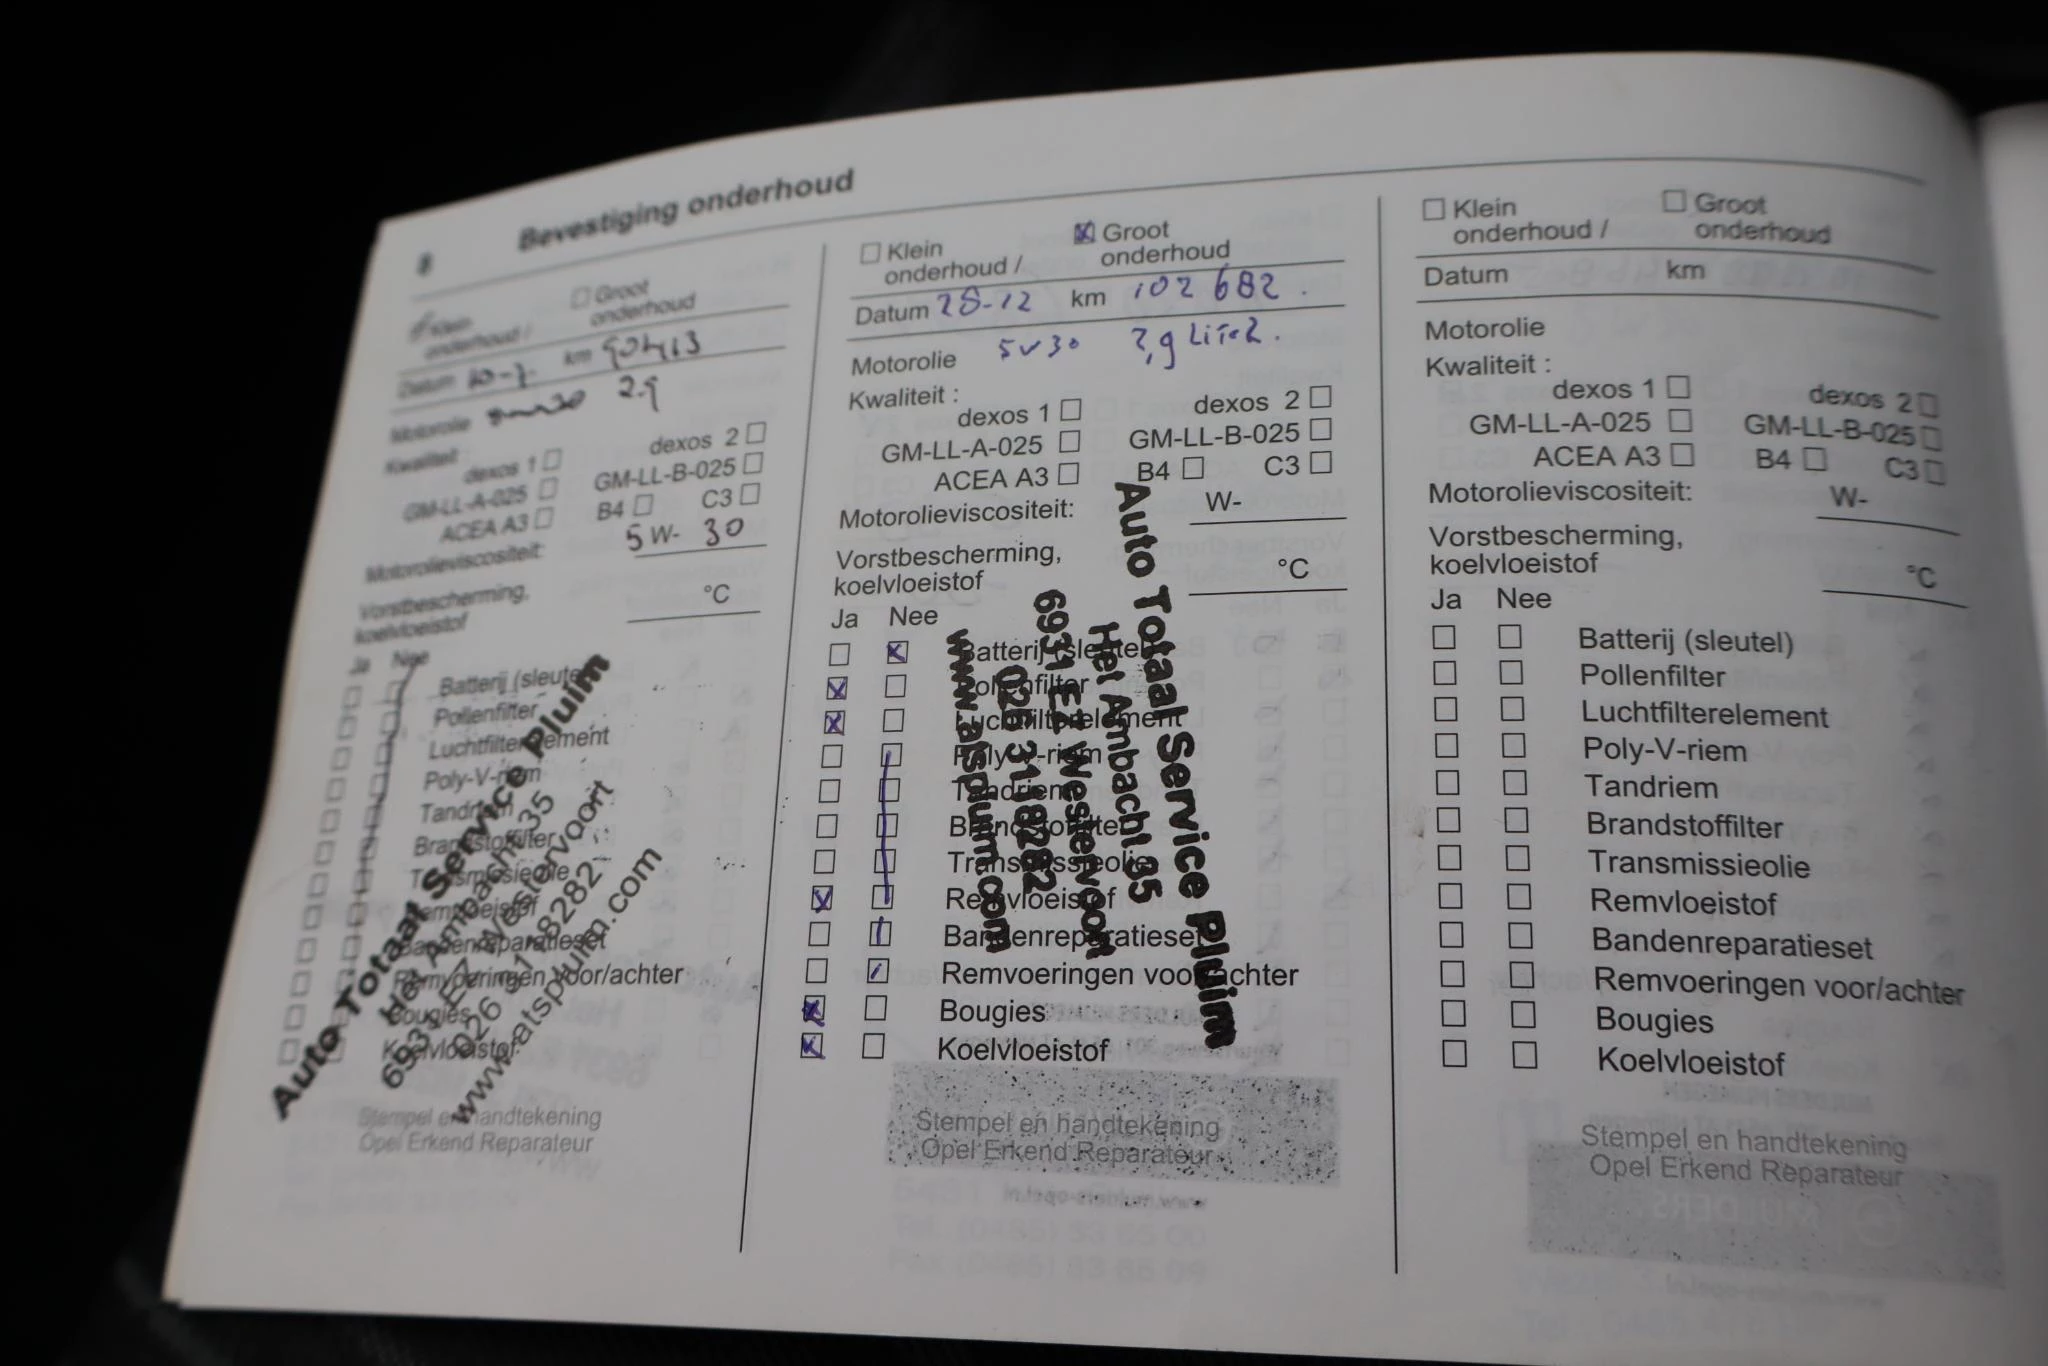 8 Bevestiging onderhoud
☑ Klein onderhoud / ☐ Groot onderhoud
Datum 10-7 km 90413
Motorolie 2.9
Kwaliteit :
dexos 1 ☐ dexos 2 ☐
GM-LL-A-025 ☐ GM-LL-B-025 ☐
ACEA A3 ☐ B4 ☐ C3 ☐
Motorolieviscositeit: 5 W- 30
Vorstbescherming,
koelvloeistof °C
Ja Nee
Batterij (sleutel)
Pollenfilter
Luchtfilterelement
Poly-V-riem
Tandriem
Brandstoffilter
Transmissieolie
Remvloeistof
Bandenreparatieset
Remvoeringen voor/achter
Bougies
Koelvloeistof
Auto Totaal Service Pluim
Het Ambacht 35
6931 EZ Westervoort
026 3118282
www.atspluim.com
Stempel en handtekening
Opel Erkend Reparateur
☐ Klein onderhoud / ☒ Groot onderhoud
Datum 28-12 km 102 682.
Motorolie 5w30 ,9 Liter.
Kwaliteit :
dexos 1 ☐ dexos 2 ☐
GM-LL-A-025 ☐ GM-LL-B-025 ☐
ACEA A3 ☐ B4 ☐ C3 ☐
Motorolieviscositeit: W-
Vorstbescherming,
koelvloeistof °C
Ja Nee
Batterij (sleutel)
Pollenfilter
Luchtfilterelement
Poly-V-riem
Tandriem
Brandstoffilter
Transmissieolie
Remvloeistof
Bandenreparatieset
Remvoeringen voor/achter
Bougies
Koelvloeistof
Auto Totaal Service Pluim
Het Ambacht 35
6931 EZ Westervoort
026 3118282
www.atspluim.com
Stempel en handtekening
Opel Erkend Reparateur
☐ Klein onderhoud / ☐ Groot onderhoud
Datum km
Motorolie
Kwaliteit :
dexos 1 ☐ dexos 2 ☐
GM-LL-A-025 ☐ GM-LL-B-025 ☐
ACEA A3 ☐ B4 ☐ C3 ☐
Motorolieviscositeit: W-
Vorstbescherming,
koelvloeistof °C
Ja Nee
Batterij (sleutel)
Pollenfilter
Luchtfilterelement
Poly-V-riem
Tandriem
Brandstoffilter
Transmissieolie
Remvloeistof
Bandenreparatieset
Remvoeringen voor/achter
Bougies
Koelvloeistof
Stempel en handtekening
Opel Erkend Reparateur